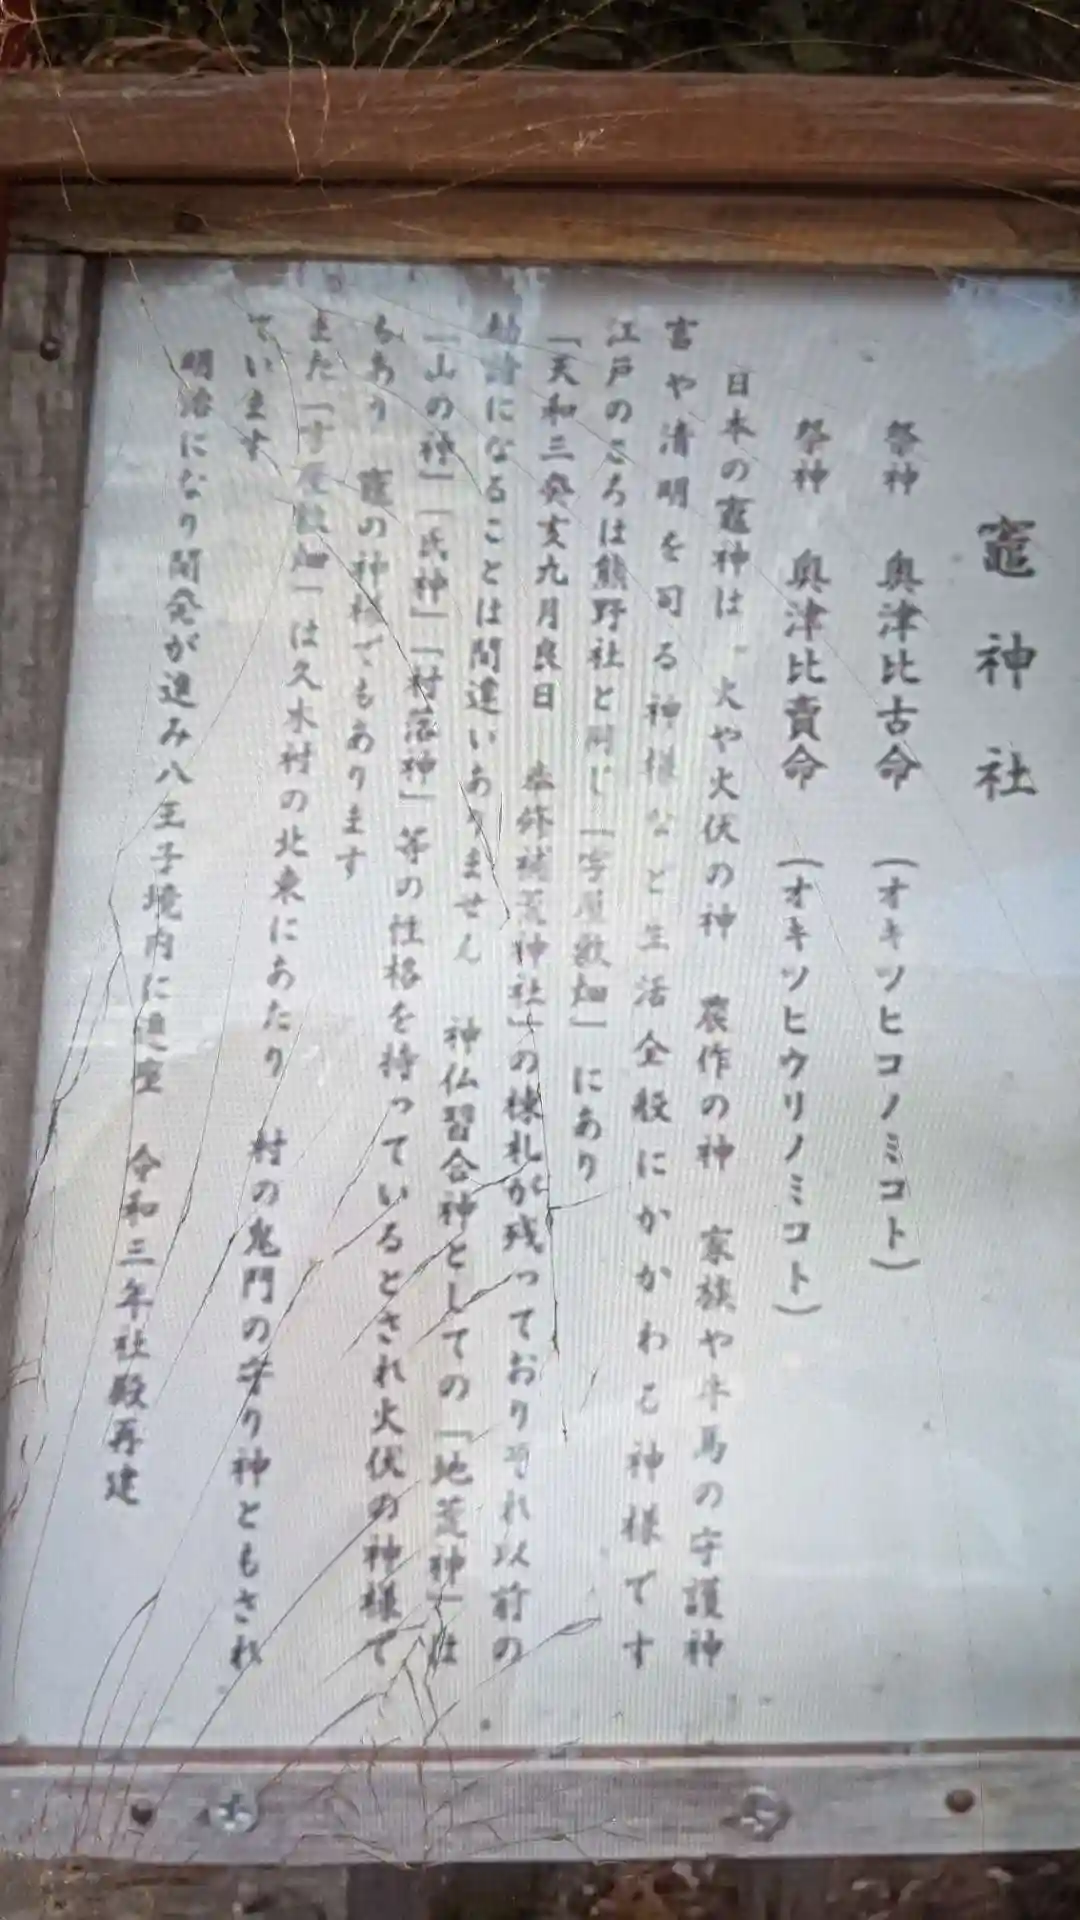 竈神社
祭神 奥津比古命 (オキツヒコノミコト)
祭神 奥津比賣命 (オキツヒウリノミコト)
日本の竈神は 火や火伏の神 農作の神 家族や牛馬の守護神
富や清明を司る神様など生活全般にかかわる神様です
江戸のころは熊野社と同じ「字屋敷畑」にあり
「天和三癸亥九月良日 奉修補荒神社」の棟札が残っておりそれ以前の
勧請になることは間違いありません 神仏習合神としての「地荒神」は
「山の神」「氏神」「村落神」等の性格を持っているとされ火伏の神様で
もあり 竈の神様でもあります
また「字屋敷畑」は久木村の北東にあたり 村の鬼門の守り神ともされ
ています
明治になり開発が進み八王子境内に遷座 令和三年社殿再建